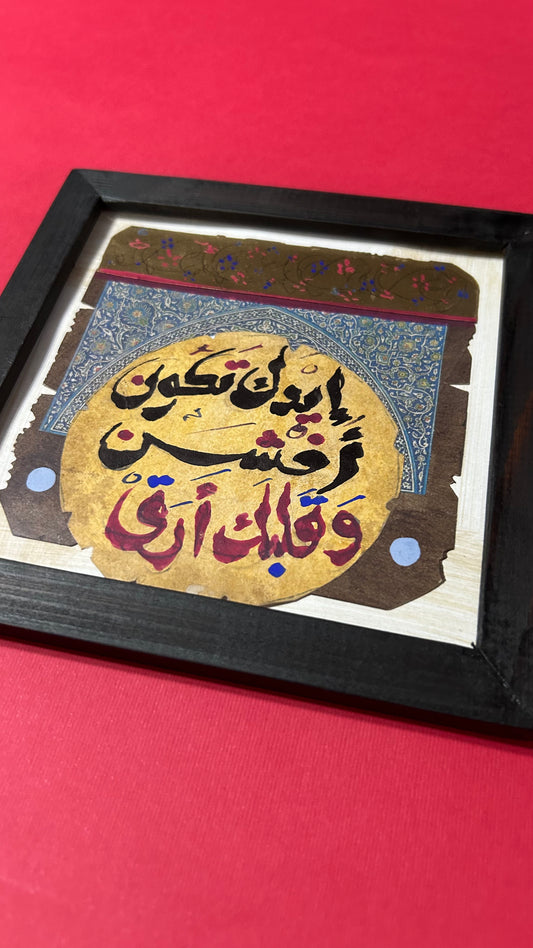 إيدك تكون
أخشن
وقلبك أرق